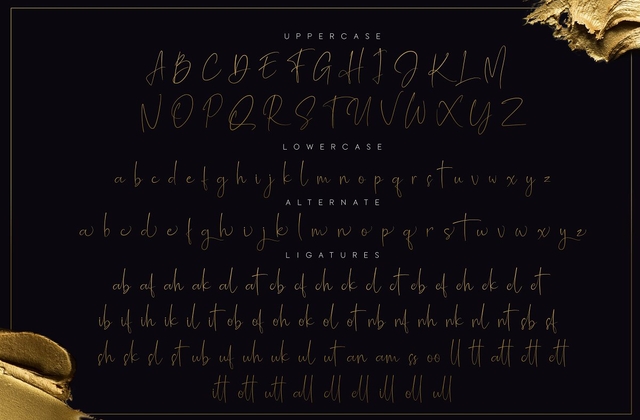 UPPERCASE
A B C D E F G H I J K L M
N O P Q R S T U V W X Y Z
LOWERCASE
a b c d e f g h i j k l m n o p q r s t u v w x y z
ALTERNATE
a b c d e f g h i j k l m n o p q r s t u v w x y z
LIGATURES
ab af ah ak al at cb cf ch ck cl ct eb ef eh ek el et
ib if ih ik il it ob of oh ok ol ot nb nf nh nk nl nt sb sf
sh sk sl st ub uf uh uk ul ut an am ss oo ll tt att ctt ett
itt ott utt all cll ell ill oll ull